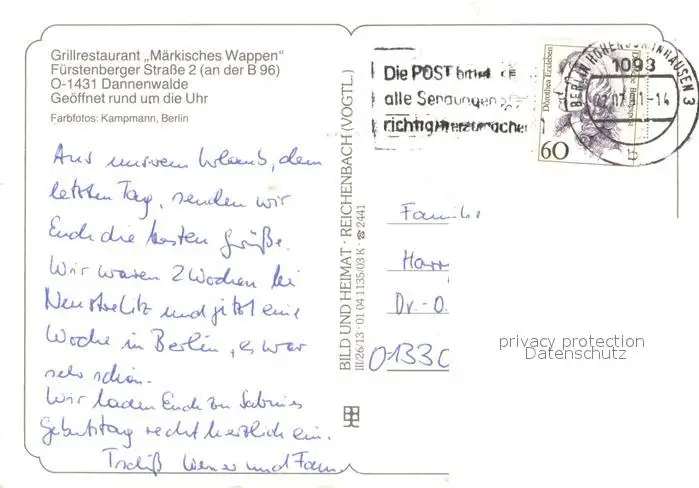 Grillrestaurant „Märkisches Wappen“
Fürstenberger Straße 2 (an der B 96)
O-1431 Dannenwalde
Geöffnet rund um die Uhr
Farbfotos: Kampmann, Berlin
Aus unserem Urlaub, dem
letzten Tag, senden wir
Euch die besten Grüße.
Wir waren 2 Wochen bei
Neustrelitz und jetzt eine
Woche in Berlin, es war
sehr schön.
Wir laden Euch zu Sabines
Geburtstag recht herzlich ein.
Tschüß Werner und Fam
BILD UND HEIMAT · REICHENBACH (VOGTL.)
III/26/13 · 01 04 1135/03 K · ☎ 2441
Die POST bittet
alle Sendungen
richtig
Dorothea Erxleben
60
BERLIN HOHENSCHÖNHAUSEN 3
1093
-14
Familie
Harr
Dr.-O.
O-1330
privacy protection
Datenschutz